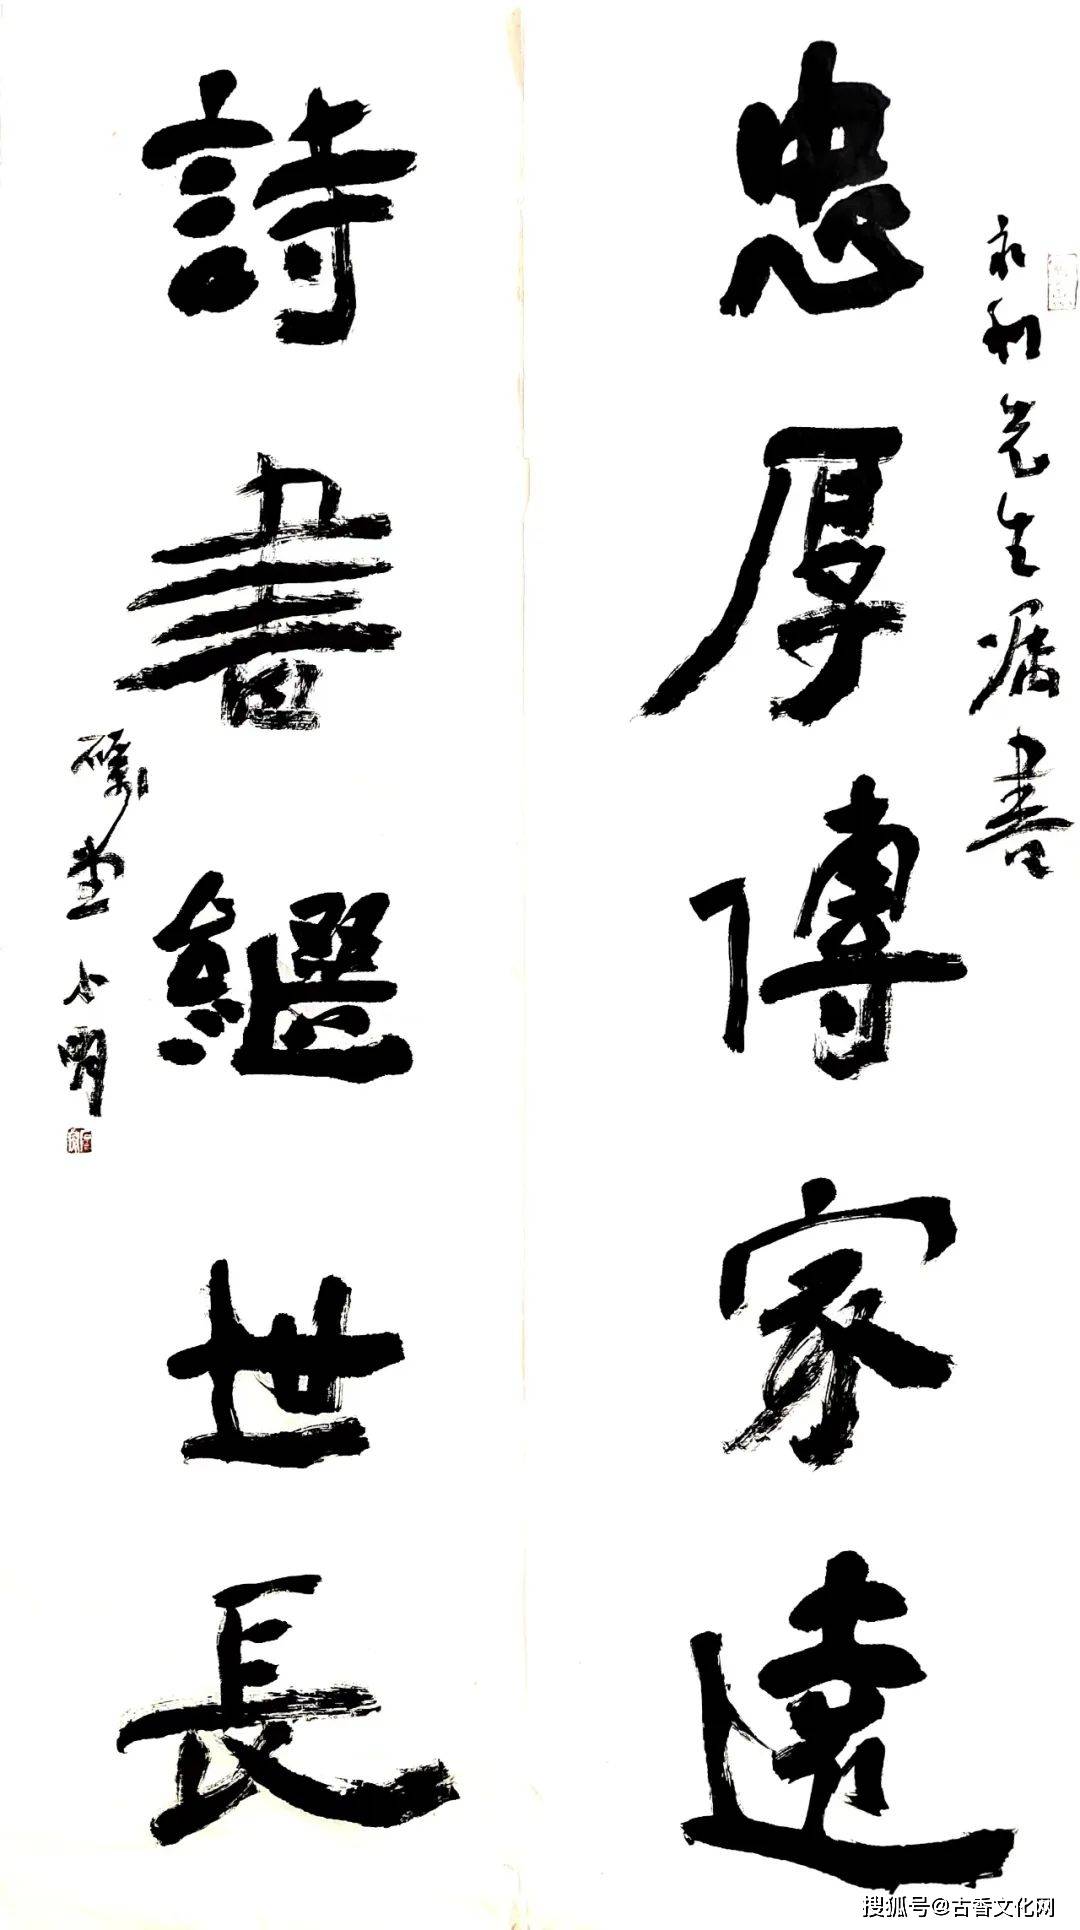 永和先生嘱書
忠厚傳家遠
詩書繼世長
堂小明
搜狐号@古香文化网